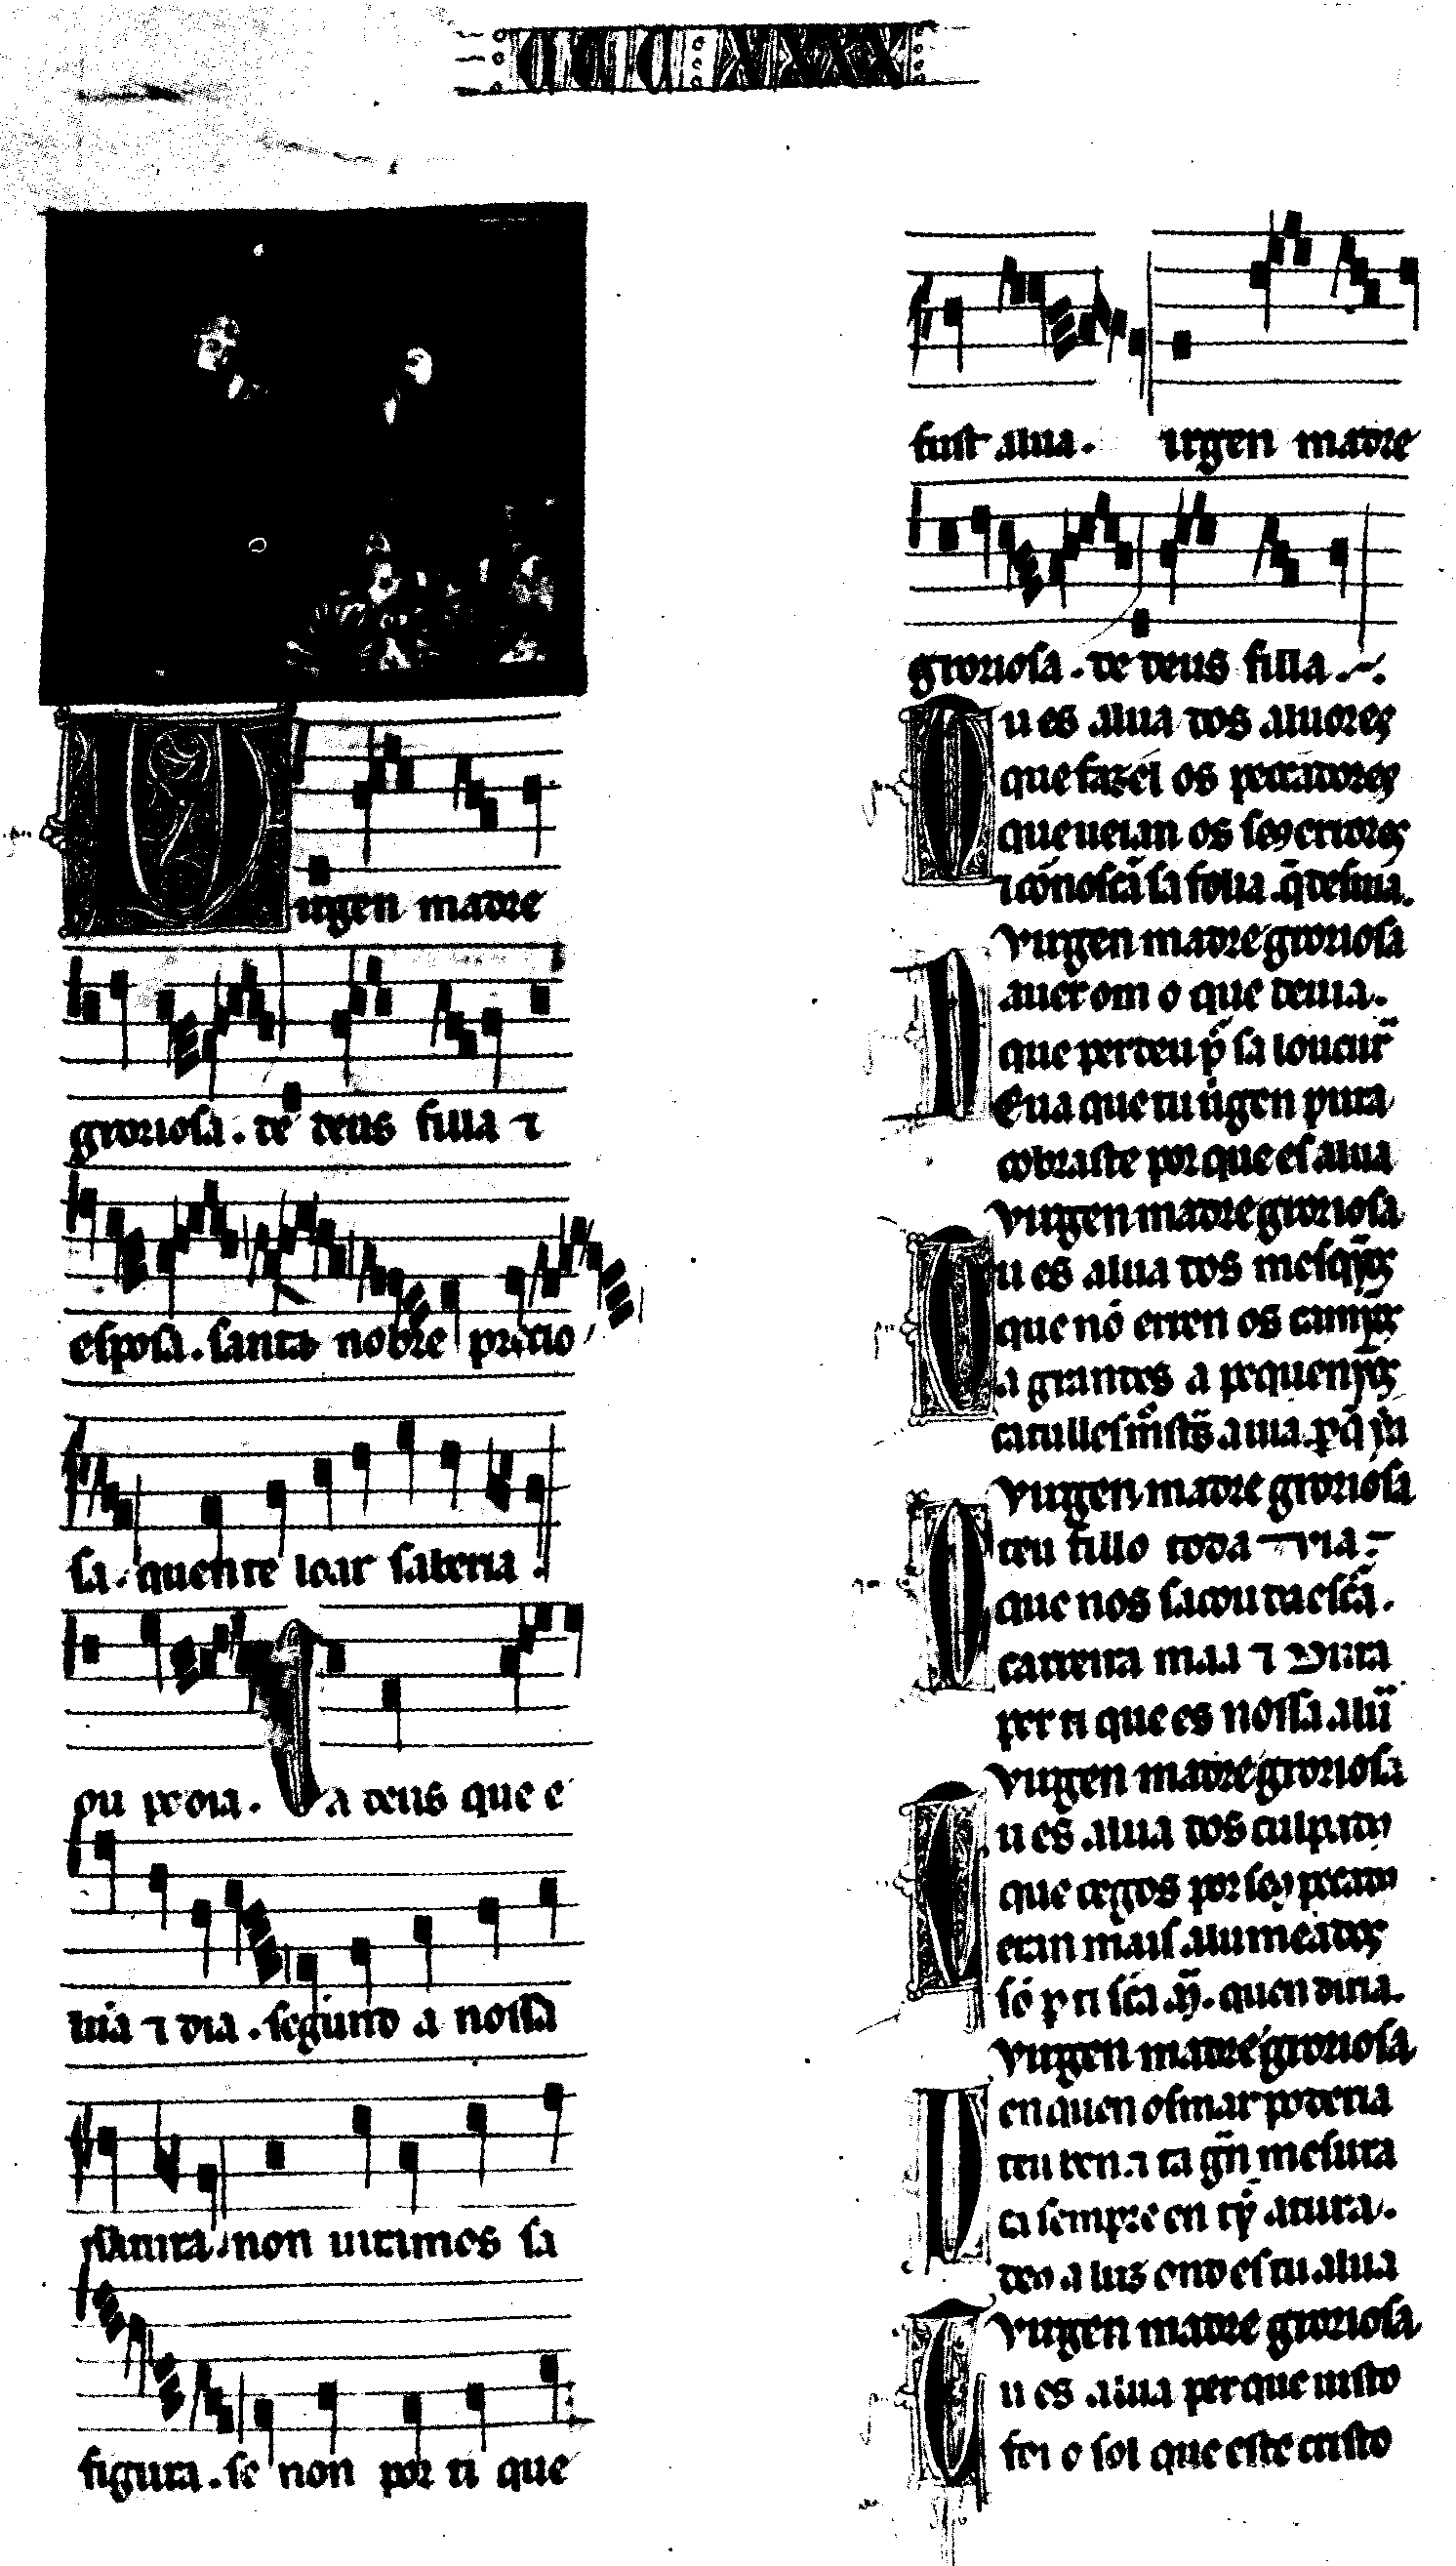 CCC XXX
Uirgen madre
groriosa. de deus filla ⁊
esposa. santa nobre precio
sa. quen te loar saberia.
ou podia. Ca deus que e
lũa ⁊ dia. segund a nossa
natura. non uiramos sa
figura. se non por ti que
fust alua. Uirgen madre
groriosa. de deus filla.
Tu es alua dos aluores
que fazẽ os peccadores
que ueian os seus errores
⁊ cõnoscã sa folia. q̃ desuia
Virgen madre groriosa
auer om o que deuia.
que perdeu p̃ sa loucura
Eua que tu uirgen pura
cobraste por que es alua
Virgen madre groriosa
Tu es alua dos mesq̃os
que nõ erren os camỹos
a grandes a pequenỹos
Virgen madre groriosa
teu fillo toda uia
que nos sacou da escã.
carreira maa ⁊ dura
per ti que es nossa alua
Virgen madre groriosa
Tu es alua dos culpados
que cegos por seus pecados
eran mais alumeados
sõ per ti sc̃a .M̃. quen diria.
Virgen madre groriosa
en quen osmar poderia
teu ben. ⁊ ta grã mesura
ca sempre en tỹ atura.
deus a luz ond es tu alua
Virgen madre groriosa
Tu es alua per que uisto
foi o sol que este cristo